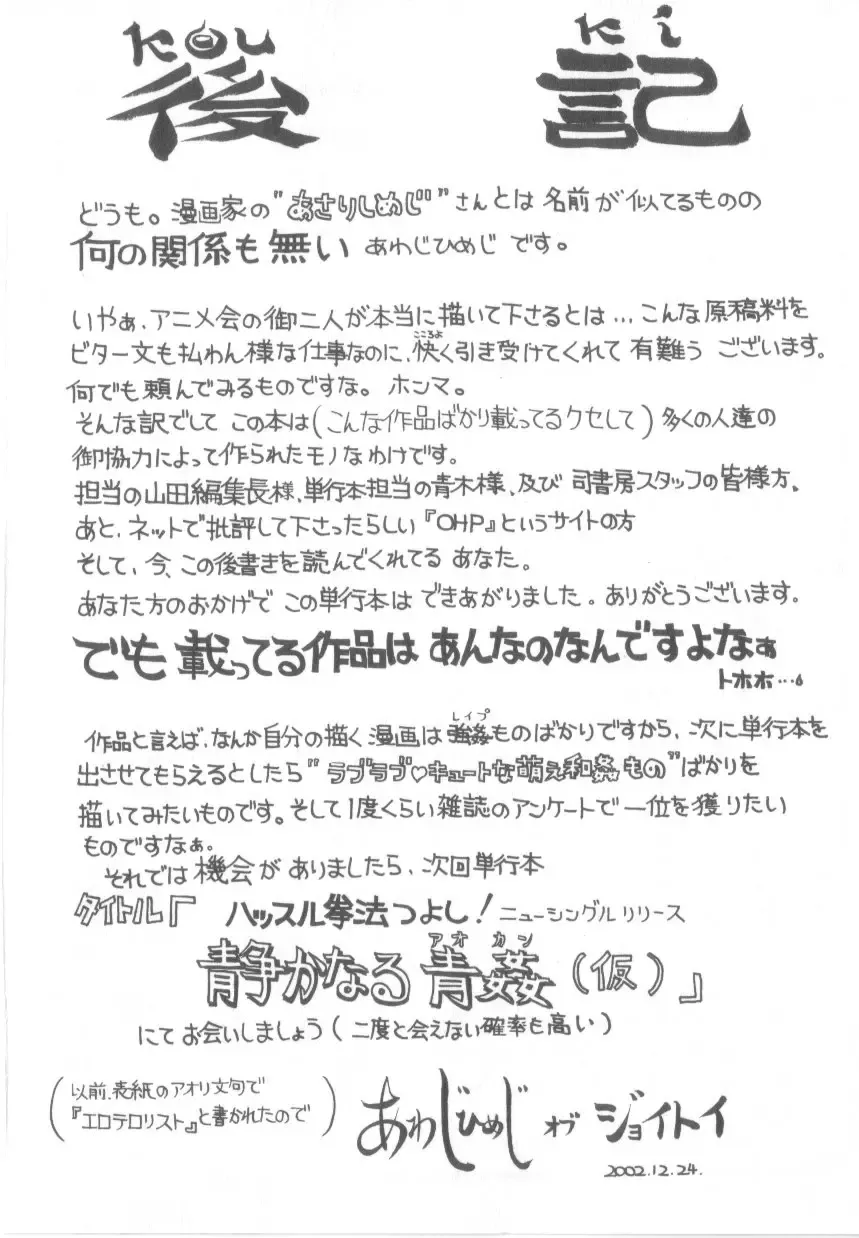 KOU KI
後 記
どうも。漫画家の"あさりしめじ"さんとは 名前が似てるものの
何の関係も無い あわじひめじ です。
いやぁ、アニメ会の御二人が本当に描いて下さるとは…こんな原稿料を
ビタ一文も払わん様な仕事なのに、快く引き受けてくれて 有難う ございます。
こころよ
何でも頼んでみるものですな。 ホンマ。
そんな訳でして この本は(こんな作品ばかり載ってるクセして)多くの人達の
御協力によって作られたモノなわけです。
担当の山田編集長様、単行本担当の青木様、及び 司書房スタッフの皆様方、
あと、ネットで批評して下さったらしい『OHP』というサイトの方
そして、今、この後書きを読んでくれてる あなた。
あなた方のおかげで この単行本は できあがりました。ありがとうございます。
でも載ってる作品は あんなのなんですよなぁ
トホホ…
作品と言えば、なんか自分の描く漫画は強姦ものばかりですから、次に単行本を
レイプ
出させてもらえるとしたら"ラブラブ♡キュートな萌え和姦もの"ばかりを
描いてみたいものです。そして1度くらい雑誌のアンケートで一位を獲りたい
ものですなぁ。
それでは機会がありましたら、次回単行本
タイトル『 ハッスル拳法つよし! ニューシングルリリース
アオカン
静かなる青姦(仮)』
にてお会いしましょう(二度と会えない確率も高い)
(以前、表紙のアオリ文句で
『エロテロリスト』と書かれたので)
あわじひめじ オブ ジョイトイ
2002.12.24.